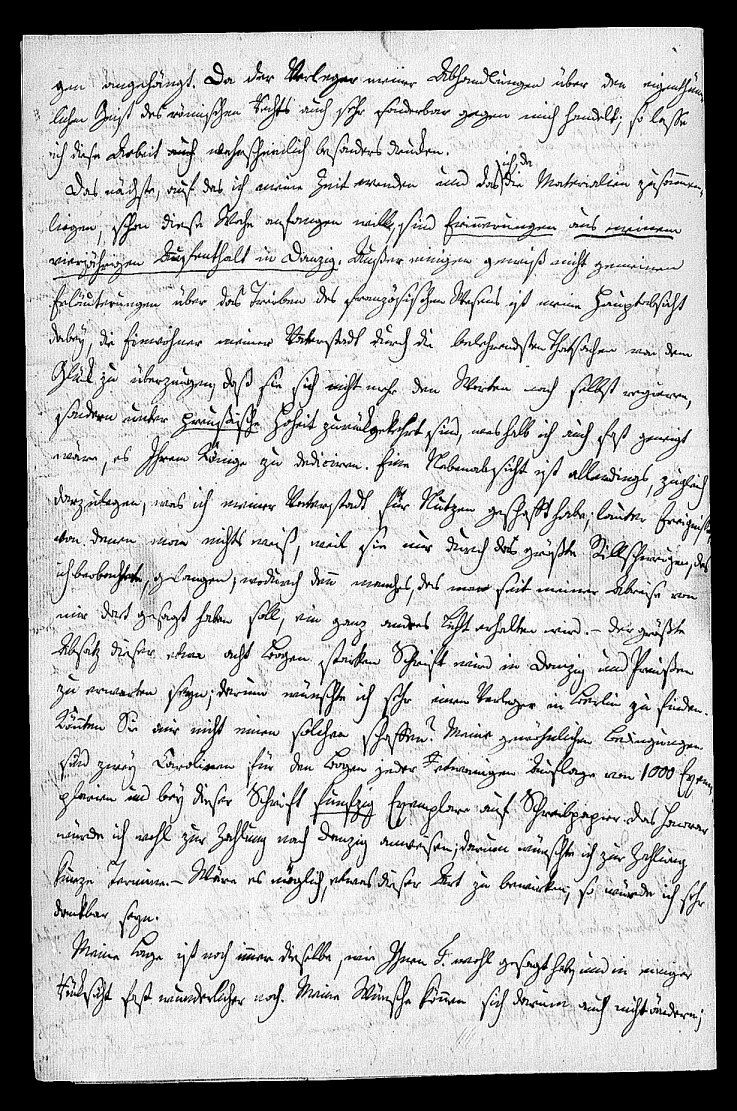 gen angehängt. Da der Verleger meiner Abhandlungen über den eigenthüm-
lichen Geist des römischen Rechts auch sehr sonderbar gegen mich handelt; so lasse
ich diese Arbeit auch wahrscheinlich besonders drucken.
Das nächste, auf das ich meine Zeit wenden und das, ich da die Materialien zusammen-
liegen, schon diese Woche anfangen will, sind Erinnerungen aus meinem
vierjährigen Aufenthalt in Danzig. Außer einigen gewiß nicht gemeinen
Erläuterungen über das Treiben des französischen Wesens ist meine Hauptabsicht
dabey, die Einwohner meiner Vaterstadt durch die belehrendsten Thatsachen von dem
Glück zu überzeugen, daß sie sich nicht mehr den Worten nach selbst regieren,
sondern unter preussische Hoheit zurückgekehrt sind, weshalb ich auch fast geneigt
wäre, es Ihrem Könige zu dediciren. Eine Nebenabsicht ist allerdings, zugleich
darzulegen, was ich meiner Vaterstadt für Nutzen geschafft habe; lauter Ereignisse
von denen man nichts weiß, weil sie nur durch das größte Stillschweigen, das
ich beobachtete, gelangen; wodurch denn manches, das man seit meiner Abreise von
mir dort gesagt haben soll, ein ganz andres Licht erhalten wird. – Der größte
Absatz dieser etwa acht Bogen starken Schrift wird in Danzig und Preußen
zu erwarten seyn; darum wünschte ich sehr einen Verleger in Berlin zu finden.
Könnten Sie mir nicht einen solchen schaffen? Meine gewöhnlichen Bedingungen
sind zwey Carolinen für den Bogen jeder Auflage von 1000 Exem-
plaren und bey dieser Schrift funfzig Exemplare auf Schreibpapier. Das Honorar
würde ich wohl zur Zahlung nach Danzig anweisen; darum wünschte ich zur Zahlung
kurze Termine. – Wäre es möglich, etwas dieser Art zu bewirken, so würde ich sehr
dankbar seyn.
Meine Lage ist noch immer dieselbe, wie Ihnen F. wohl gesagt hat, und in einiger
Rücksicht fast wunderlicher noch. Meine Wünsche können sich darum auch nicht ändern;